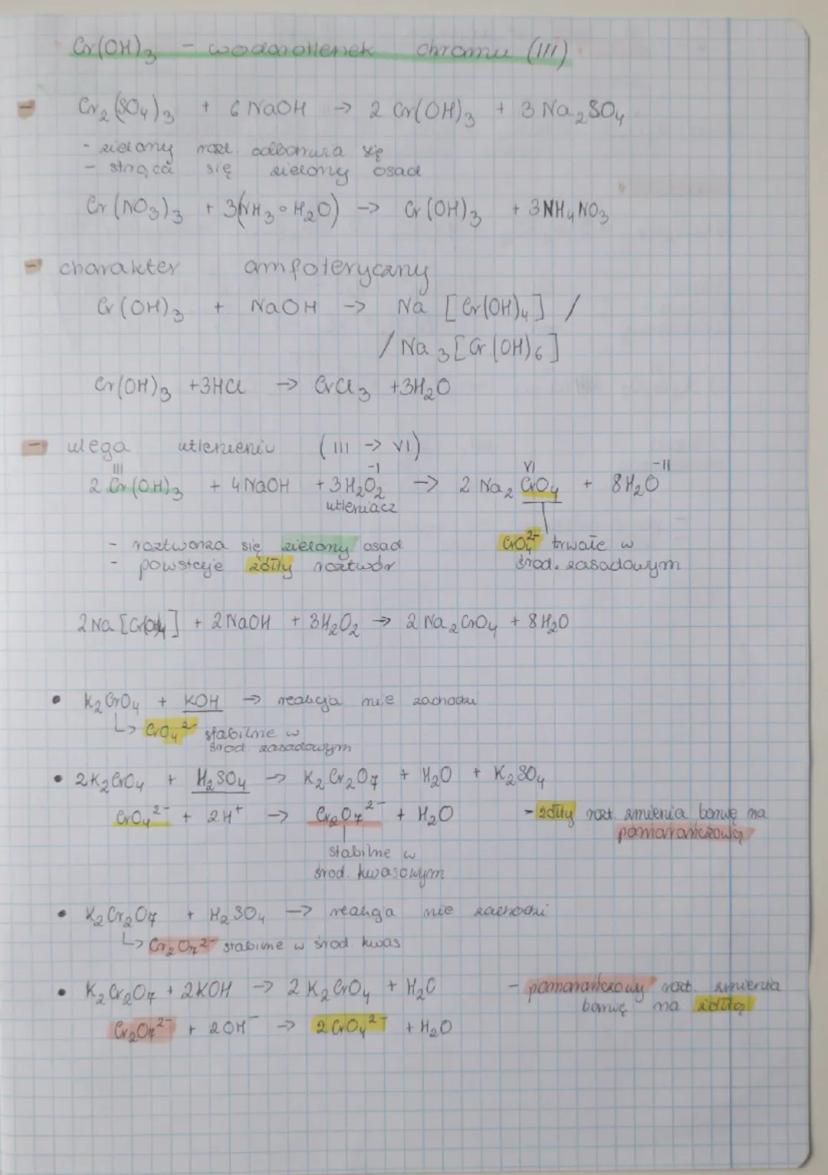 Cr(OH)₃ - wodorotlenek chromu (III)
- Cr₂(SO₄)₃ + 6 NaOH → 2 Cr(OH)₃ + 3 Na₂SO₄
- zielony rozt. odbarwia się
- strąca się zielony osad
Cr(NO₃)₃ + 3(NH₃∘H₂O) → Cr(OH)₃ + 3NH₄NO₃
- charakter amfoteryczny
Cr(OH)₃ + NaOH → Na [Cr(OH)₄] /
/ Na₃[Cr(OH)₆]
Cr(OH)₃ + 3HCl → CrCl₃ + 3H₂O
- ulega utlenieniu (III → VI)
III -I VI -II
2 Cr(OH)₃ + 4NaOH + 3H₂O₂ → 2 Na₂CrO₄ + 8H₂O
utleniacz
- roztwarza się zielony osad
- powstaje żółty roztwór
CrO₄²⁻ trwałe w
środ. zasadowym
2Na[Cr(OH)₄] + 2NaOH + 3H₂O₂ → 2 Na₂CrO₄ + 8H₂O
• K₂CrO₄ + KOH → reakcja nie zachodzi
↳ CrO₄²⁻ stabilnie w
środ zasadowym
• 2K₂CrO₄ + H₂SO₄ → K₂Cr₂O₇ + H₂O + K₂SO₄
CrO₄²⁻ + 2H⁺ → Cr₂O₇²⁻ + H₂O
- żółty rozt zmienia barwę na
pomarańczową
stabilne w
środ. kwasowym
• K₂Cr₂O₇ + H₂SO₄ → reakcja nie zachodzi
↳ Cr₂O₇²⁻ stabilne w środ kwas
• K₂Cr₂O₇ + 2KOH → 2 K₂CrO₄ + H₂O
- pomarańczowy rozt. zmienia
barwę na żółtą
Cr₂O₇²⁻ + 2OH⁻ → 2CrO₄²⁻ + H₂O